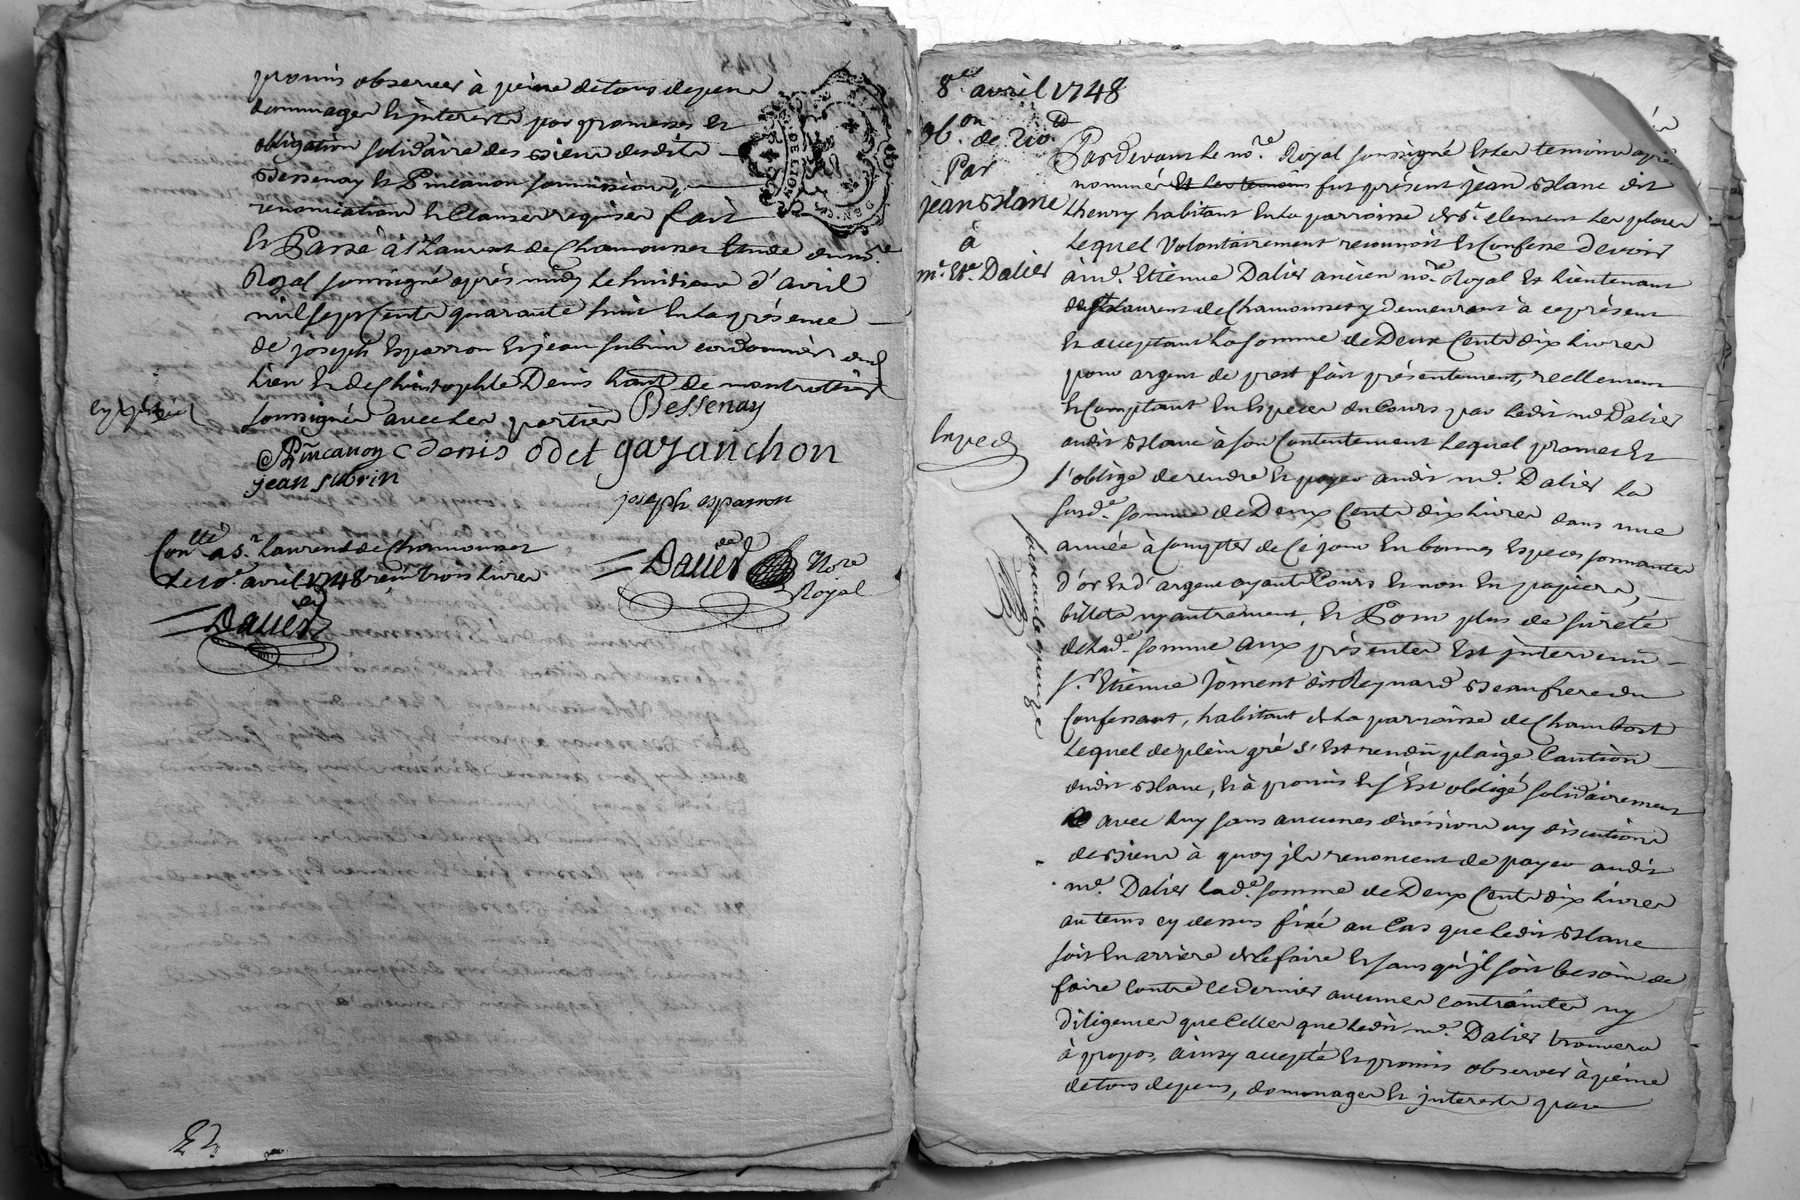 promis observer à peine de tous depens
dommages et jnterests par promesses et
obligation solidaire des biens desdits
Bessenay et Pincanon soumissions,
renonciations et Clauses requises fait
et Passé à st Laurent de Chamousset Etude du no.re
Royal soussigné après midy le huitieme d'avril
mil sept Cents quarante huit En la présence
de joseph Esparron et jean subrin cordonnier dud
Lieu et de Christophle Denis hant de montrotier
soussignés avec les parties Bessenay
Pincanon C denis odet gazanchon
jean subrin
joseph esparron
Con.llé a st Laurend de Chamousset
Le 10.e avril 1748 reçu trois livres
Dalier Nore
Royal
Dalier
8.e avril 1748
ob.on de 210.#
Par
jean Blanc
à
m.e Et.e Dalier
Exped
Pardevant Le no.re Royal soussigné Et les temoins apres
nommés Et les temoins fut présent jean Blanc dit
thenry habitant En la parroisse de st clement les places
Lequel Volontairement reconnoit Et Confesse devoir
à m.e Etienne Dalier ancien no.re Royal Et Lieutenant
de st Laurent de Chamousset y demeurant à ce présent
Et acceptant La somme de Deux Cents dix livres
pour argent de prest fait présentement, reellement
Et Comptant En Especes du Cours par Ledit m.e Dalier
audit Blanc à son Contentement Lequel promet Et
s'oblige de rendre Et payer audit m.e Dalier La
susd.e somme de Deux Cents dix livres dans une
année à Compter de Ce jour En bonnes Especes sonnantes
d'or Et d'argent ayants Cours Et non En papiers,
billets ny autrement, Et Pour plus de sureté
de Lad.e somme aux présentes Est jntervenû
s.r Etienne joment dit Reynard Beaufrere du
Confessant, habitant de La parroisse de Chambost
Lequel de plein gré s'Est rendû plaige Caution
dudit Blanc, Et à promis Et s'Est obligé solidairement
avec Luy sans aucunes divisions ny discutions
de biens à quoy jls renoncent de payer audit
m.e Dalier lad.e somme de Deux Cents dix livres
au tems cy dessus fixé au Cas que Ledit Blanc
soit En arriere de le faire Et sans qu'jl soit besoin de
faire contre ce dernier aucunes contraintes ny
Diligences que Celles que Ledit m.e Dalier trouvera
à propos, ainsy accepté Et promis observer à peine
de tous depens, dommages Et jnterests par